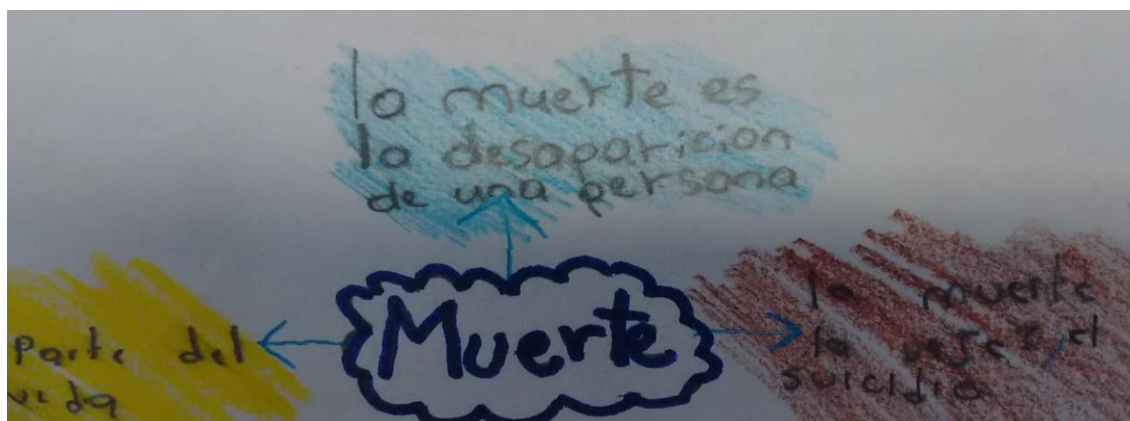 la muerte es
la desaparicion
de una persona
Muerte
Parte del
vida
la muerte
la vejez, el
suicidio